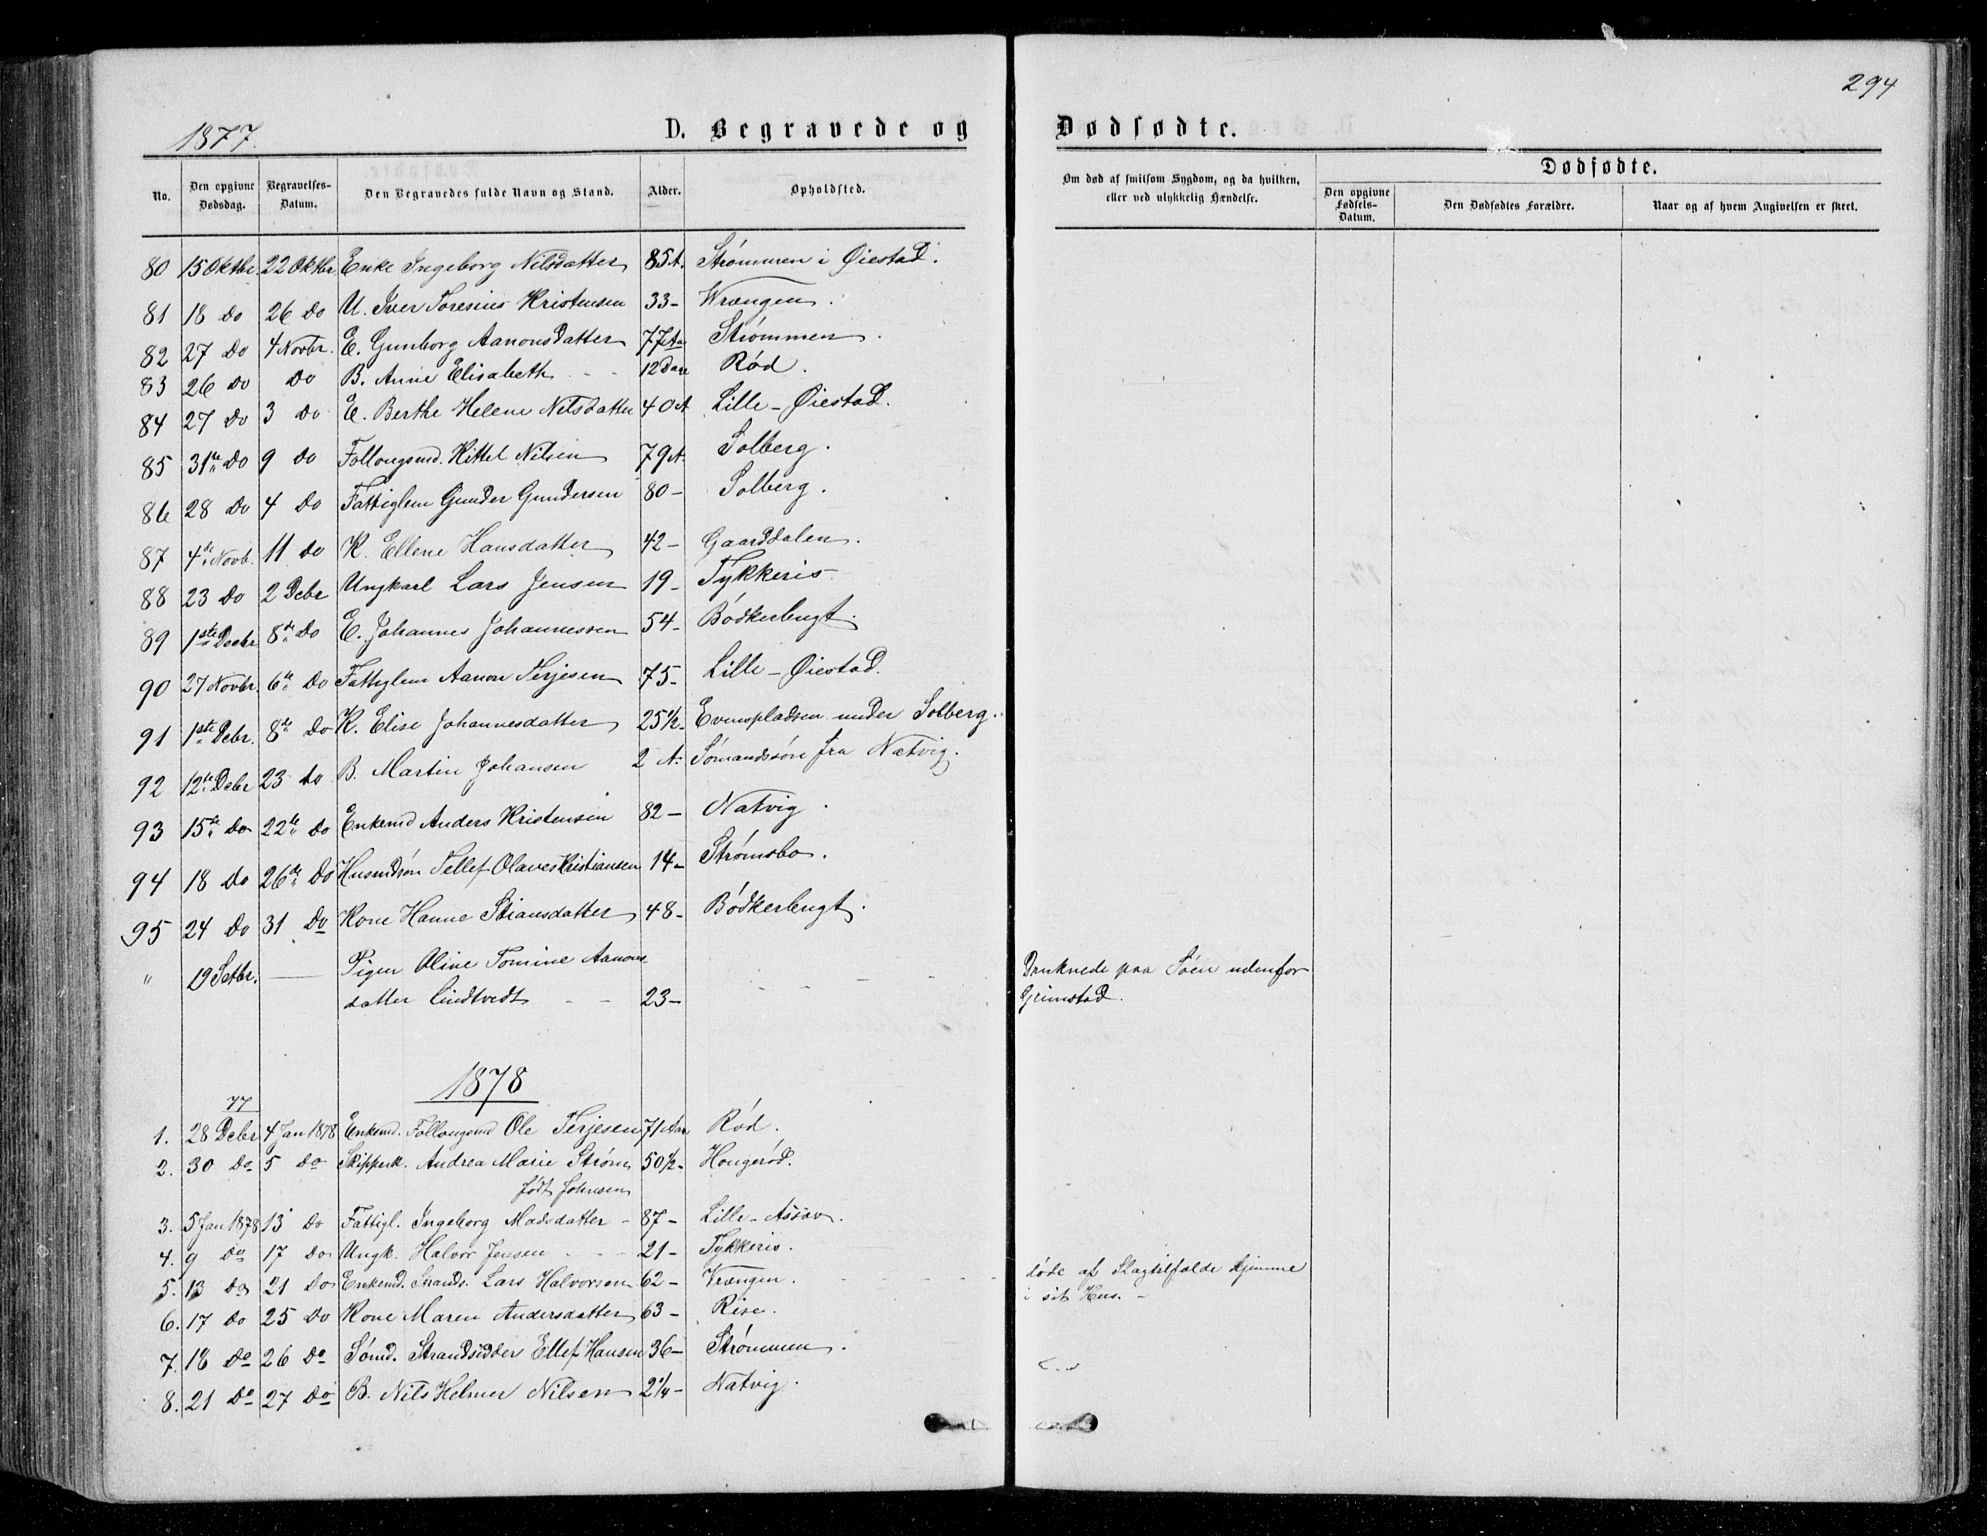 294
1877.
D. Begravede og Dødfødte.
No. Den opgivne Dødsdag. Begravelses-Datum. Den Begravedes fulde Navn og Stand. Alder. Opholdsted. Om død af smitsom Sygdom, og da hvilken, eller ved ulykkelig Hændelse. Dødfødte. Den opgivne Fødsels-Datum. Den Dødfødtes Forældre. Naar og af hvem Angivelsen er skeet.
80 15 Oktbr. 22 Oktbr Enke Ingeborg Nilsdatter 85 A. Strømmen i Øiestad.
81 18 Do 26 Do U. Iver Toresius Kristensen 33 - Vrængen.
82 27 Do 4 Novbr. E. Gunborg Aanonsdatter 77 Aar Strømmen.
83 26 Do Do B. Anne Elisabeth - - 12 Dage Rød.
84 27 Do 3 Do E. Berthe Helene Nilsdatter 40 A Lille-Øiestad.
85 31te Do 9 Do Follougsmd. Kittel Nilsen 79 A. Solberg.
86 28 Do 4 Do Fattiglem Gunder Gundersen 80 - Solberg.
87 4de Novb. 11 Do K. Ellene Hansdatter 42 - Gaarddalen.
88 23 Do 2 Debr Ungkarl Lars Jensen 19 - Tykkeris.
89 1ste Decbr 8de Do E. Johannes Johannessen 54 - Bødkerbugt.
90 27 Novbr. 6te Do Fattiglem Aanon Terjesen 75 - Lille-Øiestad.
91 1ste Debr. 8de Do K. Elise Johannesdatter 25 1/2 Evenspladsen under Solberg.
92 12te Debr 23 do B. Martin Johansen 2 A. Sømandssøn fra Natvig.
93 15de Do 22de Do Enkemd Anders Kristensen 82 - Natvig.
94 18 Do 26de Do Husmdsøn Tellef Olaves Kristiansen 14 - Strømsbo.
95 24 Do 31 Do Kone Hanne Stiansdatter 48 - Bødkerbugt.
" 19 Setbr. — Pigen Oline Tomine Aanons- - - - Druknede paa Søen udenfor
datter Lindtvedt - - 23 - Grimstad.
1878
77
1. 28 Debr 4 Jan 1878 Enkemd. Follougsmd Ole Terjesen 71 Aar Rød.
2. 30 Do 5 Do Skipperk. Andrea Marie Strøm 50 1/2 - Hougerød.
født Johnsen
3. 5 Jan 1878 13 Do Fattigl. Ingeborg Madsdatter - 87 - Lille-Assav.
4. 9 Do 17 Do Ungk. Halvor Jensen - - - 21 - Tykkeris.
5. 13 Do 21 Do Enkemd. Strands. Lars Halvorsen 62 - Vrængen. - - - døde af Slagtilfælde hjemme
i sit Hus. -
6. 17 Do 25 Do Kone Maren Andersdatter 63 - Rise.
7. 18 Do 26 Do Sømd. Strandsidder Ellef Hansen 36 - Strømmen.
8. 21 Do 27 Do B. Nils Helmer Nilsen 2 1/4 - Natvig.